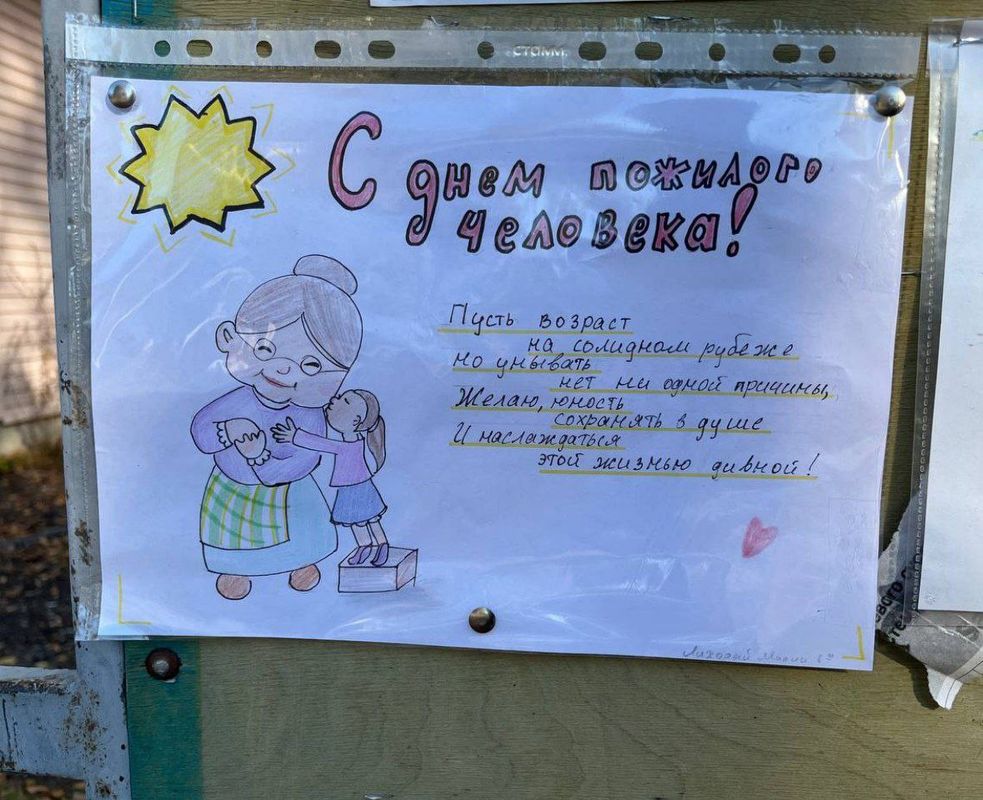 стамм
С днем пожилого
человека!
Пусть возраст
на солидном рубеже
Но унывать
нет ни одной причины,
Желаю, юность
сохранять в душе
И наслаждаться
этой жизнью дивной!